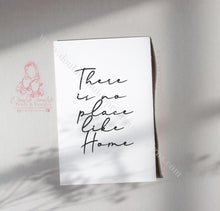 There
is no
place
like
Home